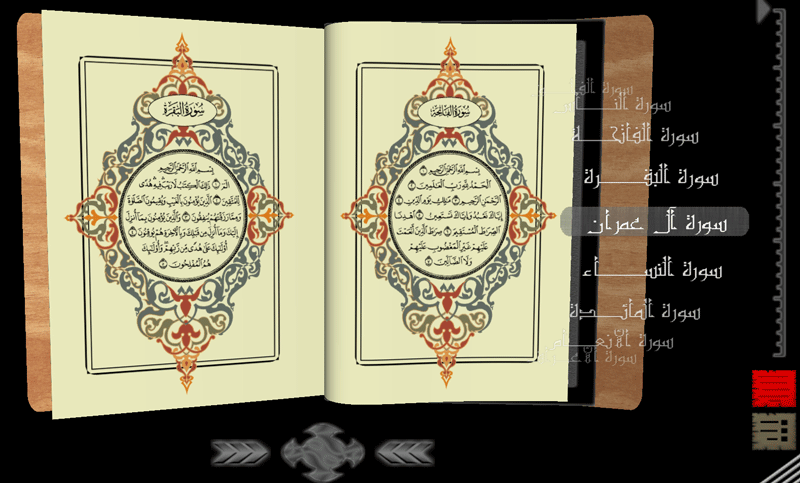 سُورَةُ الفَاتِحَةِ
بِسْمِ اللَّهِ الرَّحْمَٰنِ الرَّحِيمِ ١
الْحَمْدُ لِلَّهِ رَبِّ الْعَالَمِينَ ٢
الرَّحْمَٰنِ الرَّحِيمِ ٣ مَالِكِ يَوْمِ الدِّينِ ٤
إِيَّاكَ نَعْبُدُ وَإِيَّاكَ نَسْتَعِينُ ٥ اهْدِنَا
الصِّرَاطَ الْمُسْتَقِيمَ ٦ صِرَاطَ الَّذِينَ أَنْعَمْتَ
عَلَيْهِمْ غَيْرِ الْمَغْضُوبِ عَلَيْهِمْ
وَلَا الضَّالِّينَ ٧
سُورَةُ البَقَرَةِ
بِسْمِ اللَّهِ الرَّحْمَٰنِ الرَّحِيمِ
الم ١ ذَٰلِكَ الْكِتَٰبُ لَا رَيْبَ فِيهِ هُدًى
لِلْمُتَّقِينَ ٢ الَّذِينَ يُؤْمِنُونَ بِالْغَيْبِ وَيُقِيمُونَ الصَّلَوٰةَ
وَمِمَّا رَزَقْنَٰهُمْ يُنْفِقُونَ ٣ وَالَّذِينَ يُؤْمِنُونَ بِمَا أُنْزِلَ
إِلَيْكَ وَمَا أُنْزِلَ مِنْ قَبْلِكَ وَبِالْآخِرَةِ هُمْ يُوقِنُونَ ٤
أُولَٰئِكَ عَلَىٰ هُدًى مِنْ رَبِّهِمْ وَأُولَٰئِكَ
هُمُ الْمُفْلِحُونَ ٥
سورة الناس
سورة الفاتحة
سورة البقرة
سورة آل عمران
سورة النساء
سورة المائدة
سورة الأنعام
سورة الأعراف